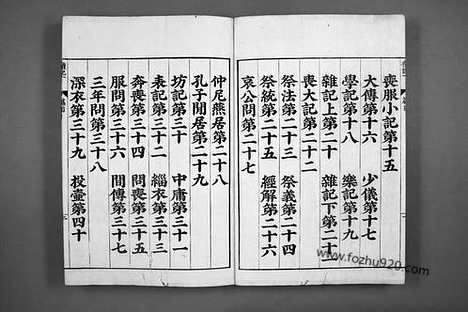 喪服小記第十五
大傳第十六　少儀第十七
學記第十八　樂記第十九
雜記第二十　雜記下第二十一
喪大記第二十二
祭法第二十三　祭義第二十四
祭統第二十五　經解第二十六
哀公問第二十七
仲尼燕居第二十八
孔子閒居第二十九
坊記第三十　中庸第三十一
表記第三十二　緇衣第三十三
奔喪第三十四　問喪第三十五
服問第三十六　間傳第三十七
三年問第三十八
深衣第三十九　投壺第四十
www.fozhu920.com